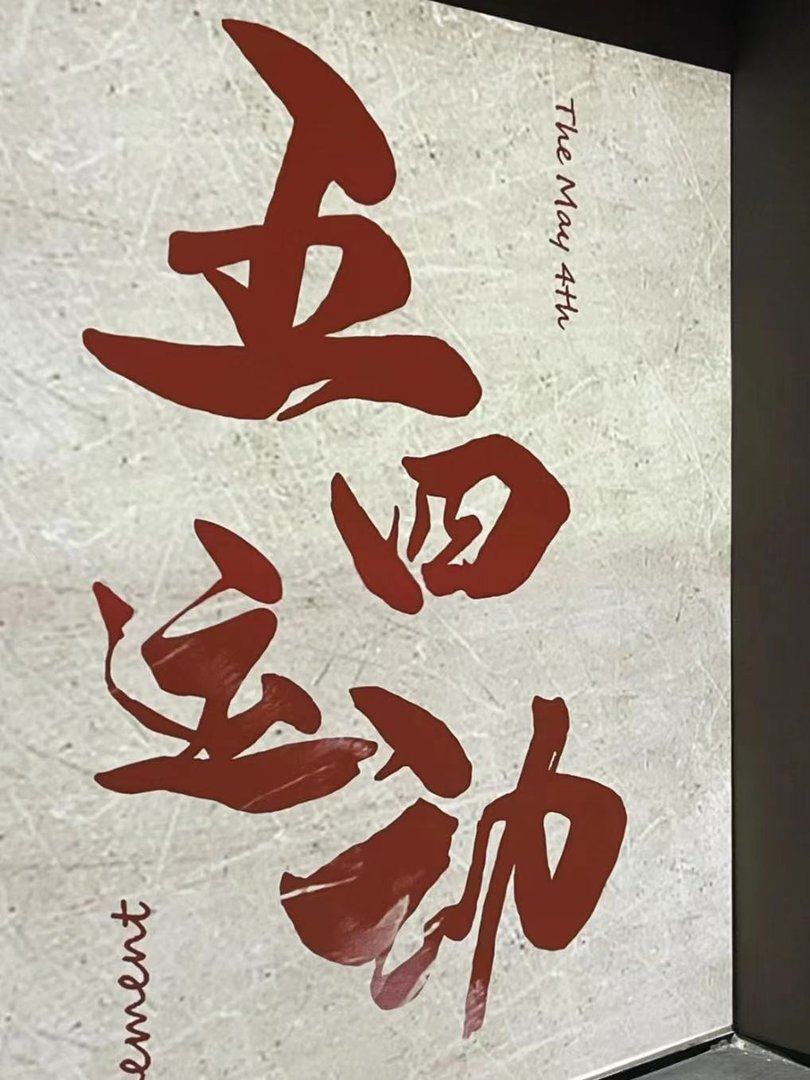 The May 4th
五四
运动
ement